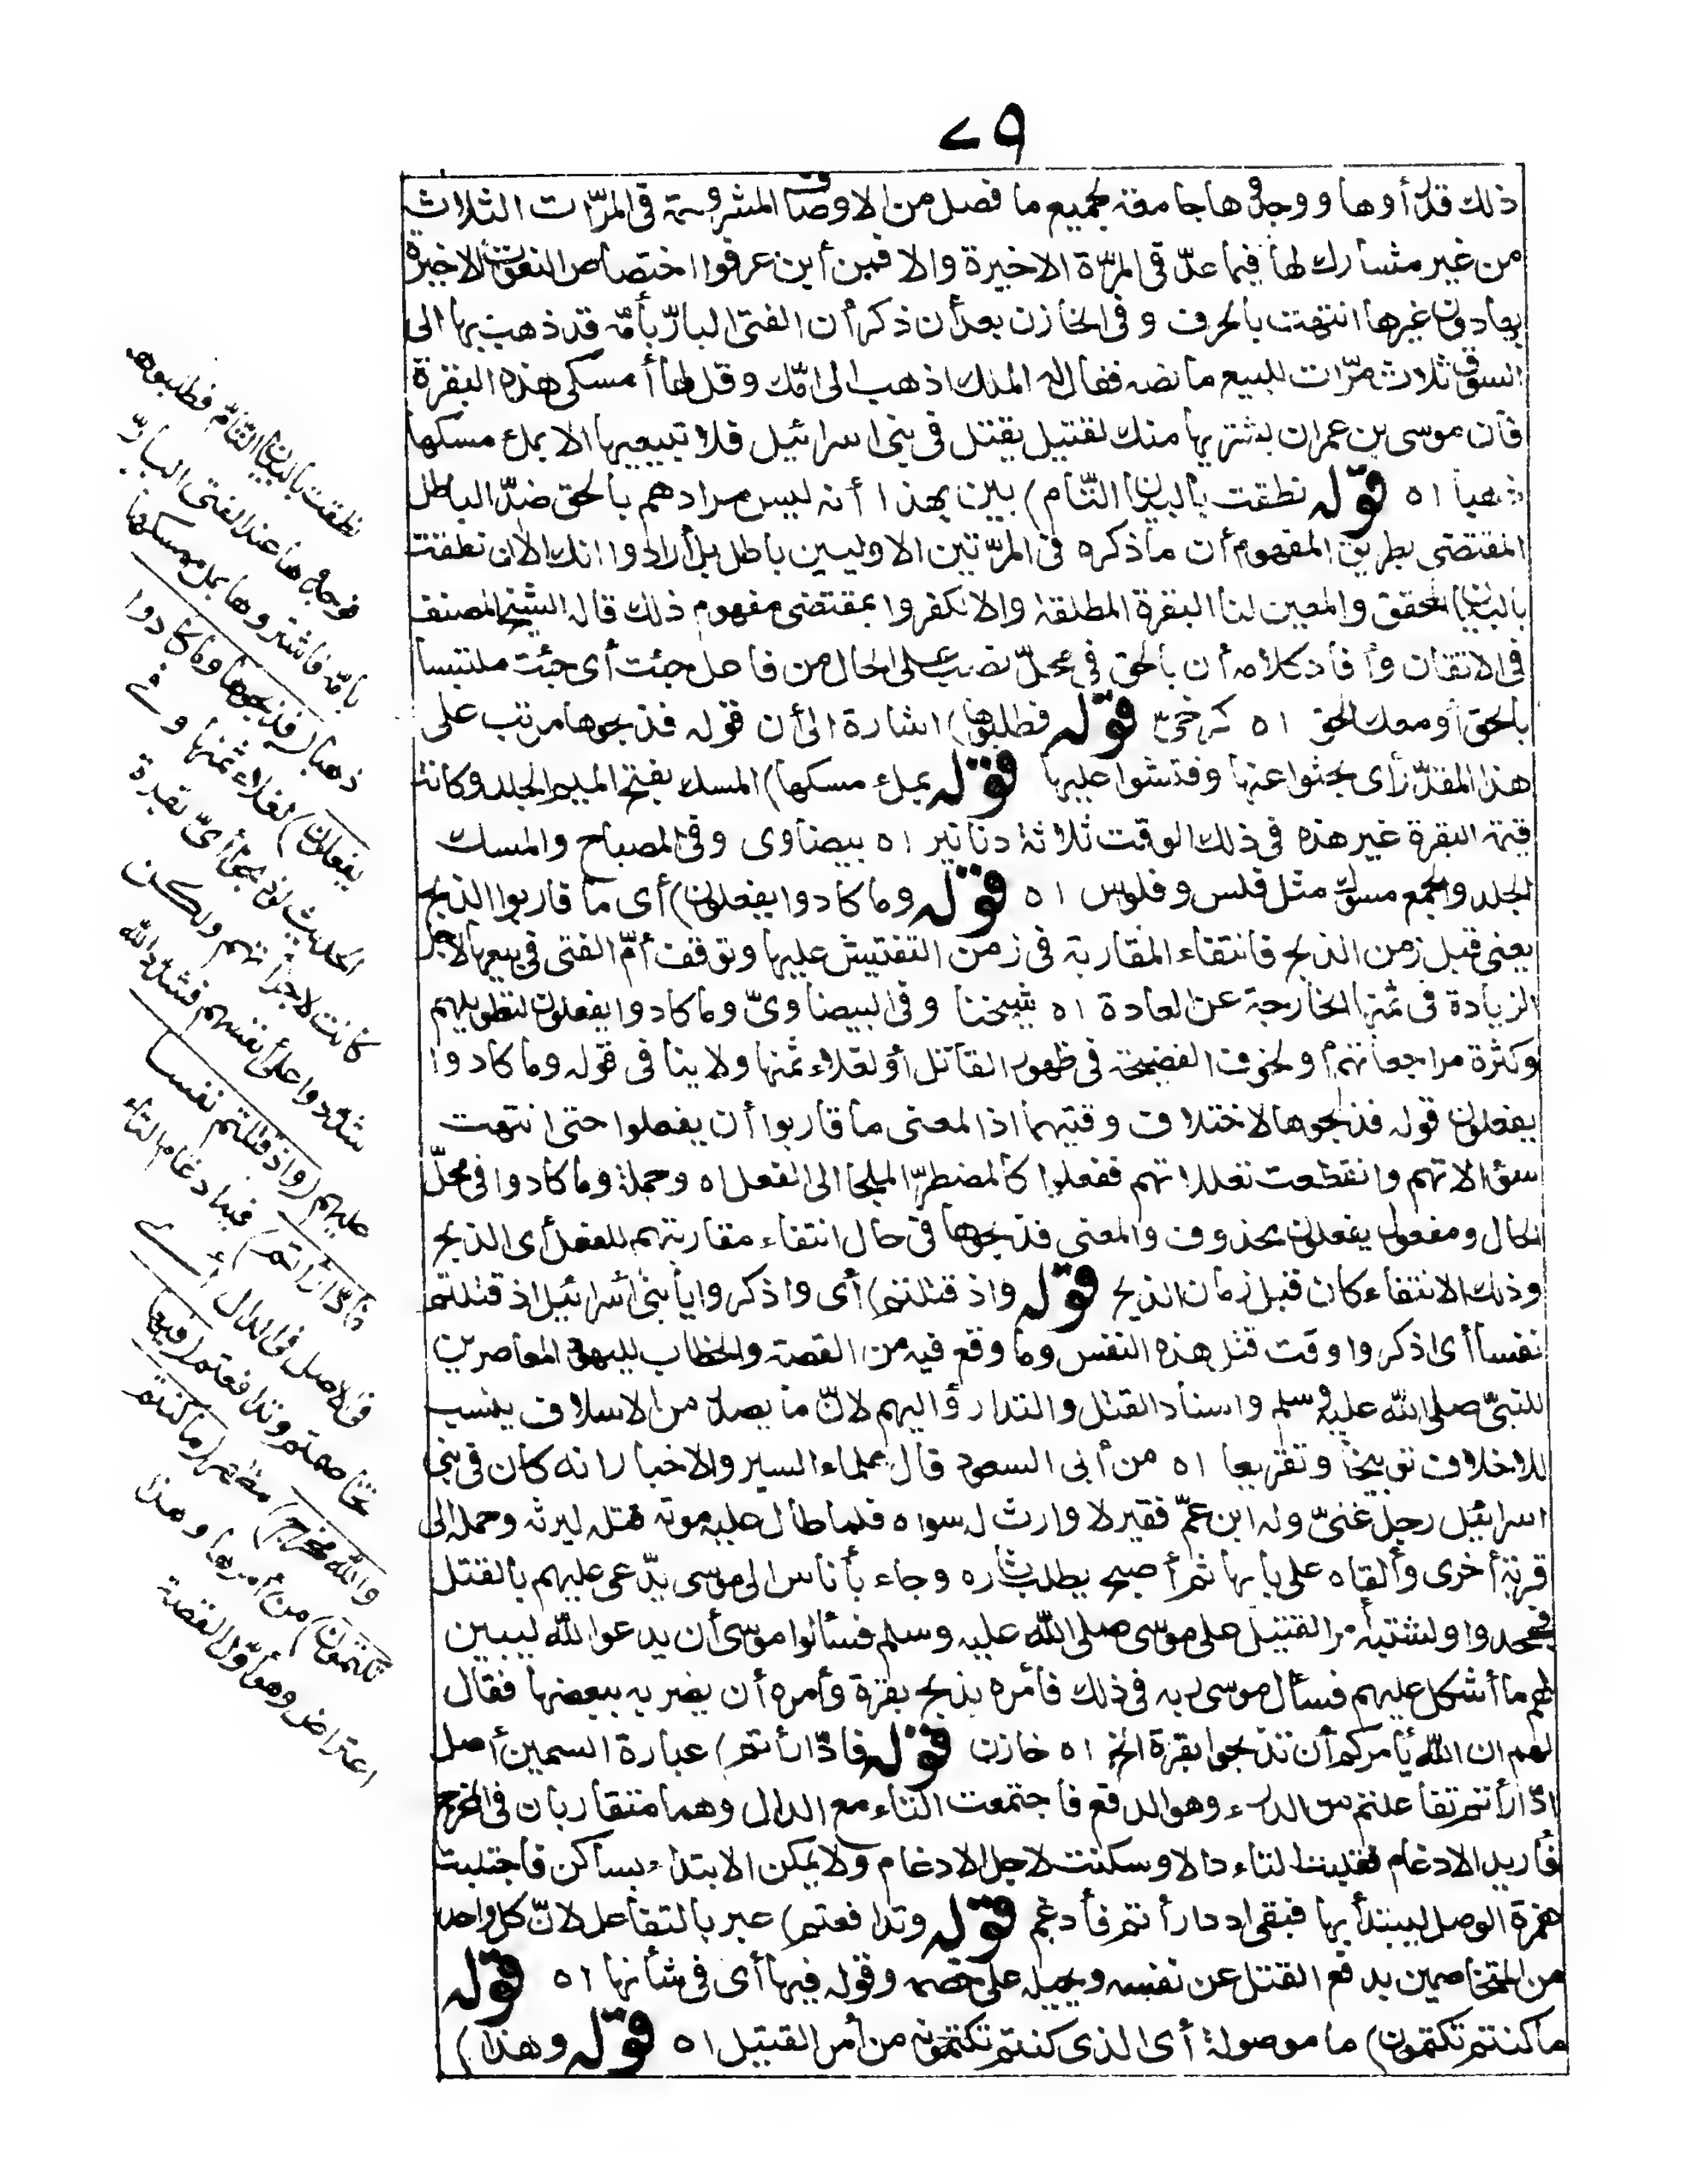 ٧٩
ذلك قد رأوها ووجدوها جامعة لجميع ما فصل من الاوصاف المشروحة فى المرّات الثلاث
من غير مشارك لها فيما عدّ فى المرّة الاخيرة والا فمن أين عرفوا اختصاص النعوت الاخيرة
بها دون غيرها انتهت بالحرف وفى الخازن بعد أن ذكر أن الفتى البارّ بأمّه قد ذهب بها الى
السوق ثلاث مرّات للبيع ما نصه فقال له الملك اذهب الى امّك وقل لها أمسكى هذه البقرة
فان موسى بن عمران يشتريها منك لقتيل يقتل فى بنى اسرائيل فلا تبيعيها الا بملء مسكها
ذهبا اه قوله نطقت بالبيان التّام) بين بهذا أنه ليس مرادهم بالحق ضدّ الباطل
المقتضى بطريق المفهوم أن ما ذكره فى المرّتين الاوليين باطل بل أرادوا انك الآن نطقت
بالبيان المحقق والمعين لنا البقرة المطلقة والا لكفروا بمقتضى مفهوم ذلك قاله الشيخ المصنف
فى الاتقان وأفاد كلامه أن بالحق فى محلّ نصب على الحال من فاعل جئت أى جئت ملتبسا
بالحق أو معك الحق اه كرخىّ قوله فطلبوها) اشارة الى أن قوله فذبحوها مرتب على
هذا المقدّر أى بحثوا عنها وفتشوا عليها قوله بملء مسكها) المسك بفتح الميم الجلد وكانت
قيمة البقرة غير هذه فى ذلك الوقت ثلاثة دنانير اه بيضاوى وفى المصباح والمسك
الجلد والجمع مسوك مثل فلس وفلوس اه قوله وما كادوا يفعلون) أى ما قاربوا الذبح
يعنى قبل زمن الذبح فانتفاء المقاربة فى زمن التفتيش عليها وتوقف أمّ الفتى فى بيعها لاجل
الزيادة فى ثمنها الخارجة عن العادة اه شيخنا وفى البيضاوىّ وما كادوا يفعلون لتطويلهم
وكثرة مراجعاتهم أو لخوف الفضيحة فى ظهور القاتل أو لغلاء ثمنها ولا ينافى قوله وما كادوا
يفعلون قوله فذبحوها لاختلاف وقتيهما اذ المعنى ما قاربوا أن يفعلوا حتى انتهت
سؤالاتهم وانقطعت تعللاتهم ففعلوا كالمضطرّ الملجا الى الفعل اه وجملة وما كادوا فى محلّ
الحال ومفعول يفعلون محذوف والمعنى فذبحوها فى حال انتفاء مقاربتهم للفعل أى الذبح
وذلك الانتفاء كان قبل زمان الذبح قوله واذ قتلتم) أى واذكروا يا بنى أسرائيل اذ قتلتم
نفسا أى اذكروا وقت قتل هذه النفس وما وقع فيه من القصة والخطاب لليهود المعاصرين
للنبىّ صلى الله عليه وسلم واسناد القتل والتدارؤ اليهم لانّ ما يصدر من الاسلاف ينسب
للاخلاف توبيخا وتقريعا اه من أبى السعود قال علماء السير والاخبار انه كان فى بنى
اسرائيل رجل غنىّ وله ابن عمّ فقير لا وارث له سواه فلما طال عليه موته قتله ليرثه وحمله الى
قرية أخرى وألقاه على بابها ثم أصبح يطلب ثاره وجاء بأناس الى موسى يدّعى عليهم بالقتل
فجحدوا واشتبه أمر القتيل على موسى صلى الله عليه وسلم فسألوا موسى أن يدعو الله ليبين
لهم ما أشكل عليهم فسأل موسى ربه فى ذلك فأمره بذبح بقرة وأمره أن يضربه ببعضها فقال
لهم ان الله يأمركم أن تذبحوا بقرة الخ اه خازن قوله فادّارأتم) عبارة السمين أصل
ادّارأتم تفاعلتم من الدرء وهو الدفع فاجتمعت التاء مع الدال وهما متقاربان فى المخرج
فأريد الادغام فقلبت التاء دالا وسكنت لاجل الادغام ولا يمكن الابتداء بساكن فاجتلبت
همزة الوصل ليبتدأ بها فبقى اددارأتم فأدغم قوله وتدافعتم) عبر بالتفاعل لانّ كل واحد
من المتخاصمين يدفع القتل عن نفسه ويحيله على خصمه وقوله فيها أى فى شأنها اه قوله
ما كنتم تكتمون) ما موصولة أى الذى كنتم تكتمونه من أمر القتيل اه قوله وهذا)
نطقت بالبيان التّامّ فطلبوها
فوجدوها عند الفتى البارّ
بأمّه فاشتروها بملء مسكها
ذهبا (فذبحوها وما كادوا
يفعلون) لغلاء ثمنها وفى
الحديث لو ذبحوا أىّ بقرة
كانت لاجزأتهم ولكن
شدّدوا على أنفسهم فشدّد الله
عليهم (واذ قتلتم نفسا
فادّارأتم) فيه ادغام التاء
فى الاصل فى الدال أى
تخاصمتم وتدافعتم (فيها
والله مخرج) مظهر (ما كنتم
تكتمون) من أمرها وهذا
اعتراض وهو أوّل القصة